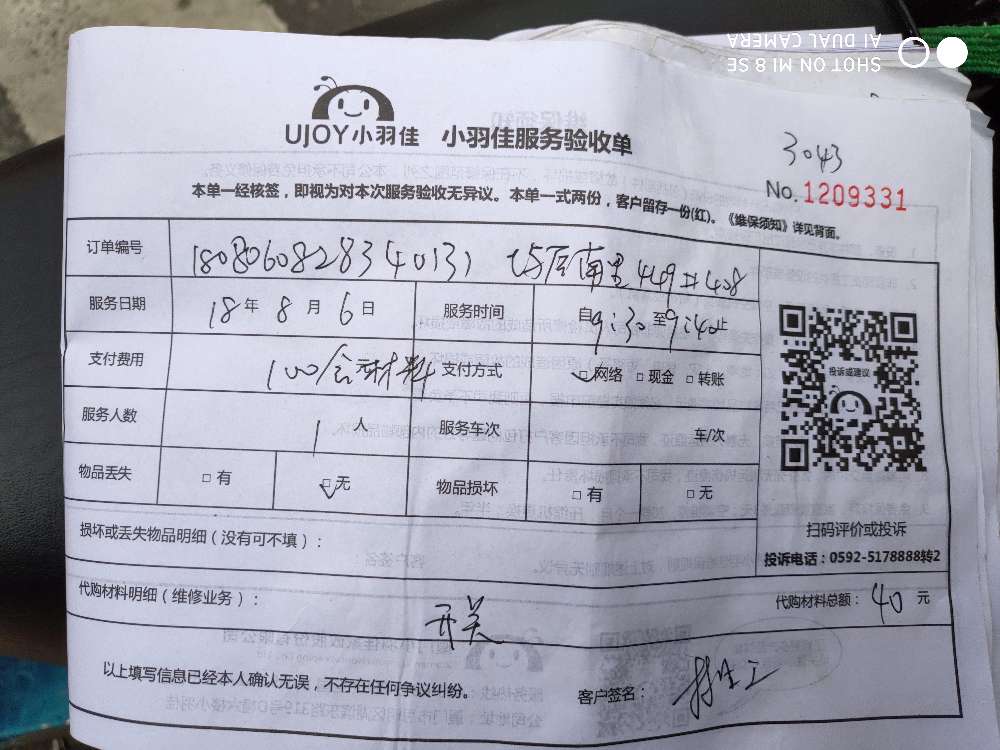 SHOT ON MI 8 SE
AI DUAL CAMERA
UJOY小羽佳 小羽佳服务验收单
3043
No. 1209331
本单一经核签，即视为对本次服务验收无异议。本单一式两份，客户留存一份(红)。《维保须知》详见背面。
订单编号 180806082834 0131 南里449#408
服务日期 18年 8月 6日 服务时间 自9:30至9:40止
支付费用 100/含元材料 支付方式 □网络 □现金 □转账
服务人数 1人 服务车次 车/次
物品丢失 □有 □无 物品损坏 □有 □无
损坏或丢失物品明细（没有可不填）：
投诉或建议
扫码评价或投诉
投诉电话：0592-5178888转2
代购材料明细（维修业务）：
开关
代购材料总额：40元
以上填写信息已经本人确认无误，不存在任何争议纠纷。
客户签名：